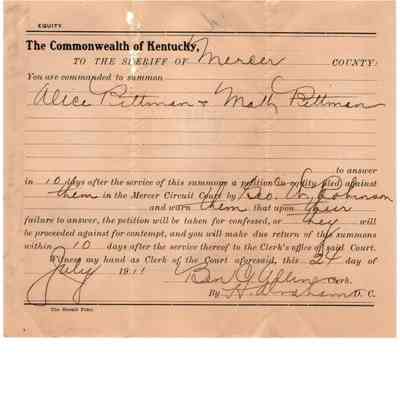 EQUITY
The Commonwealth of Kentucky,
TO THE SHERIFF OF Mercer COUNTY:
You are commanded to summon
Alice Pittman & Math Pittman
to answer
in 10 days after the service of this summons a petition in equity filed against
them in the Mercer Circuit Court by Geo. W. Robinson
and warn them that upon their
failure to answer, the petition will be taken for confessed, or they will
be proceeded against for contempt, and you will make due return of this summons
within 10 days after the service thereof to the Clerk's office of said Court.
Witness my hand as Clerk of the Court aforesaid, this 24 day of
July 1911 Ben Clerk.
By D. C.
The Herald Print